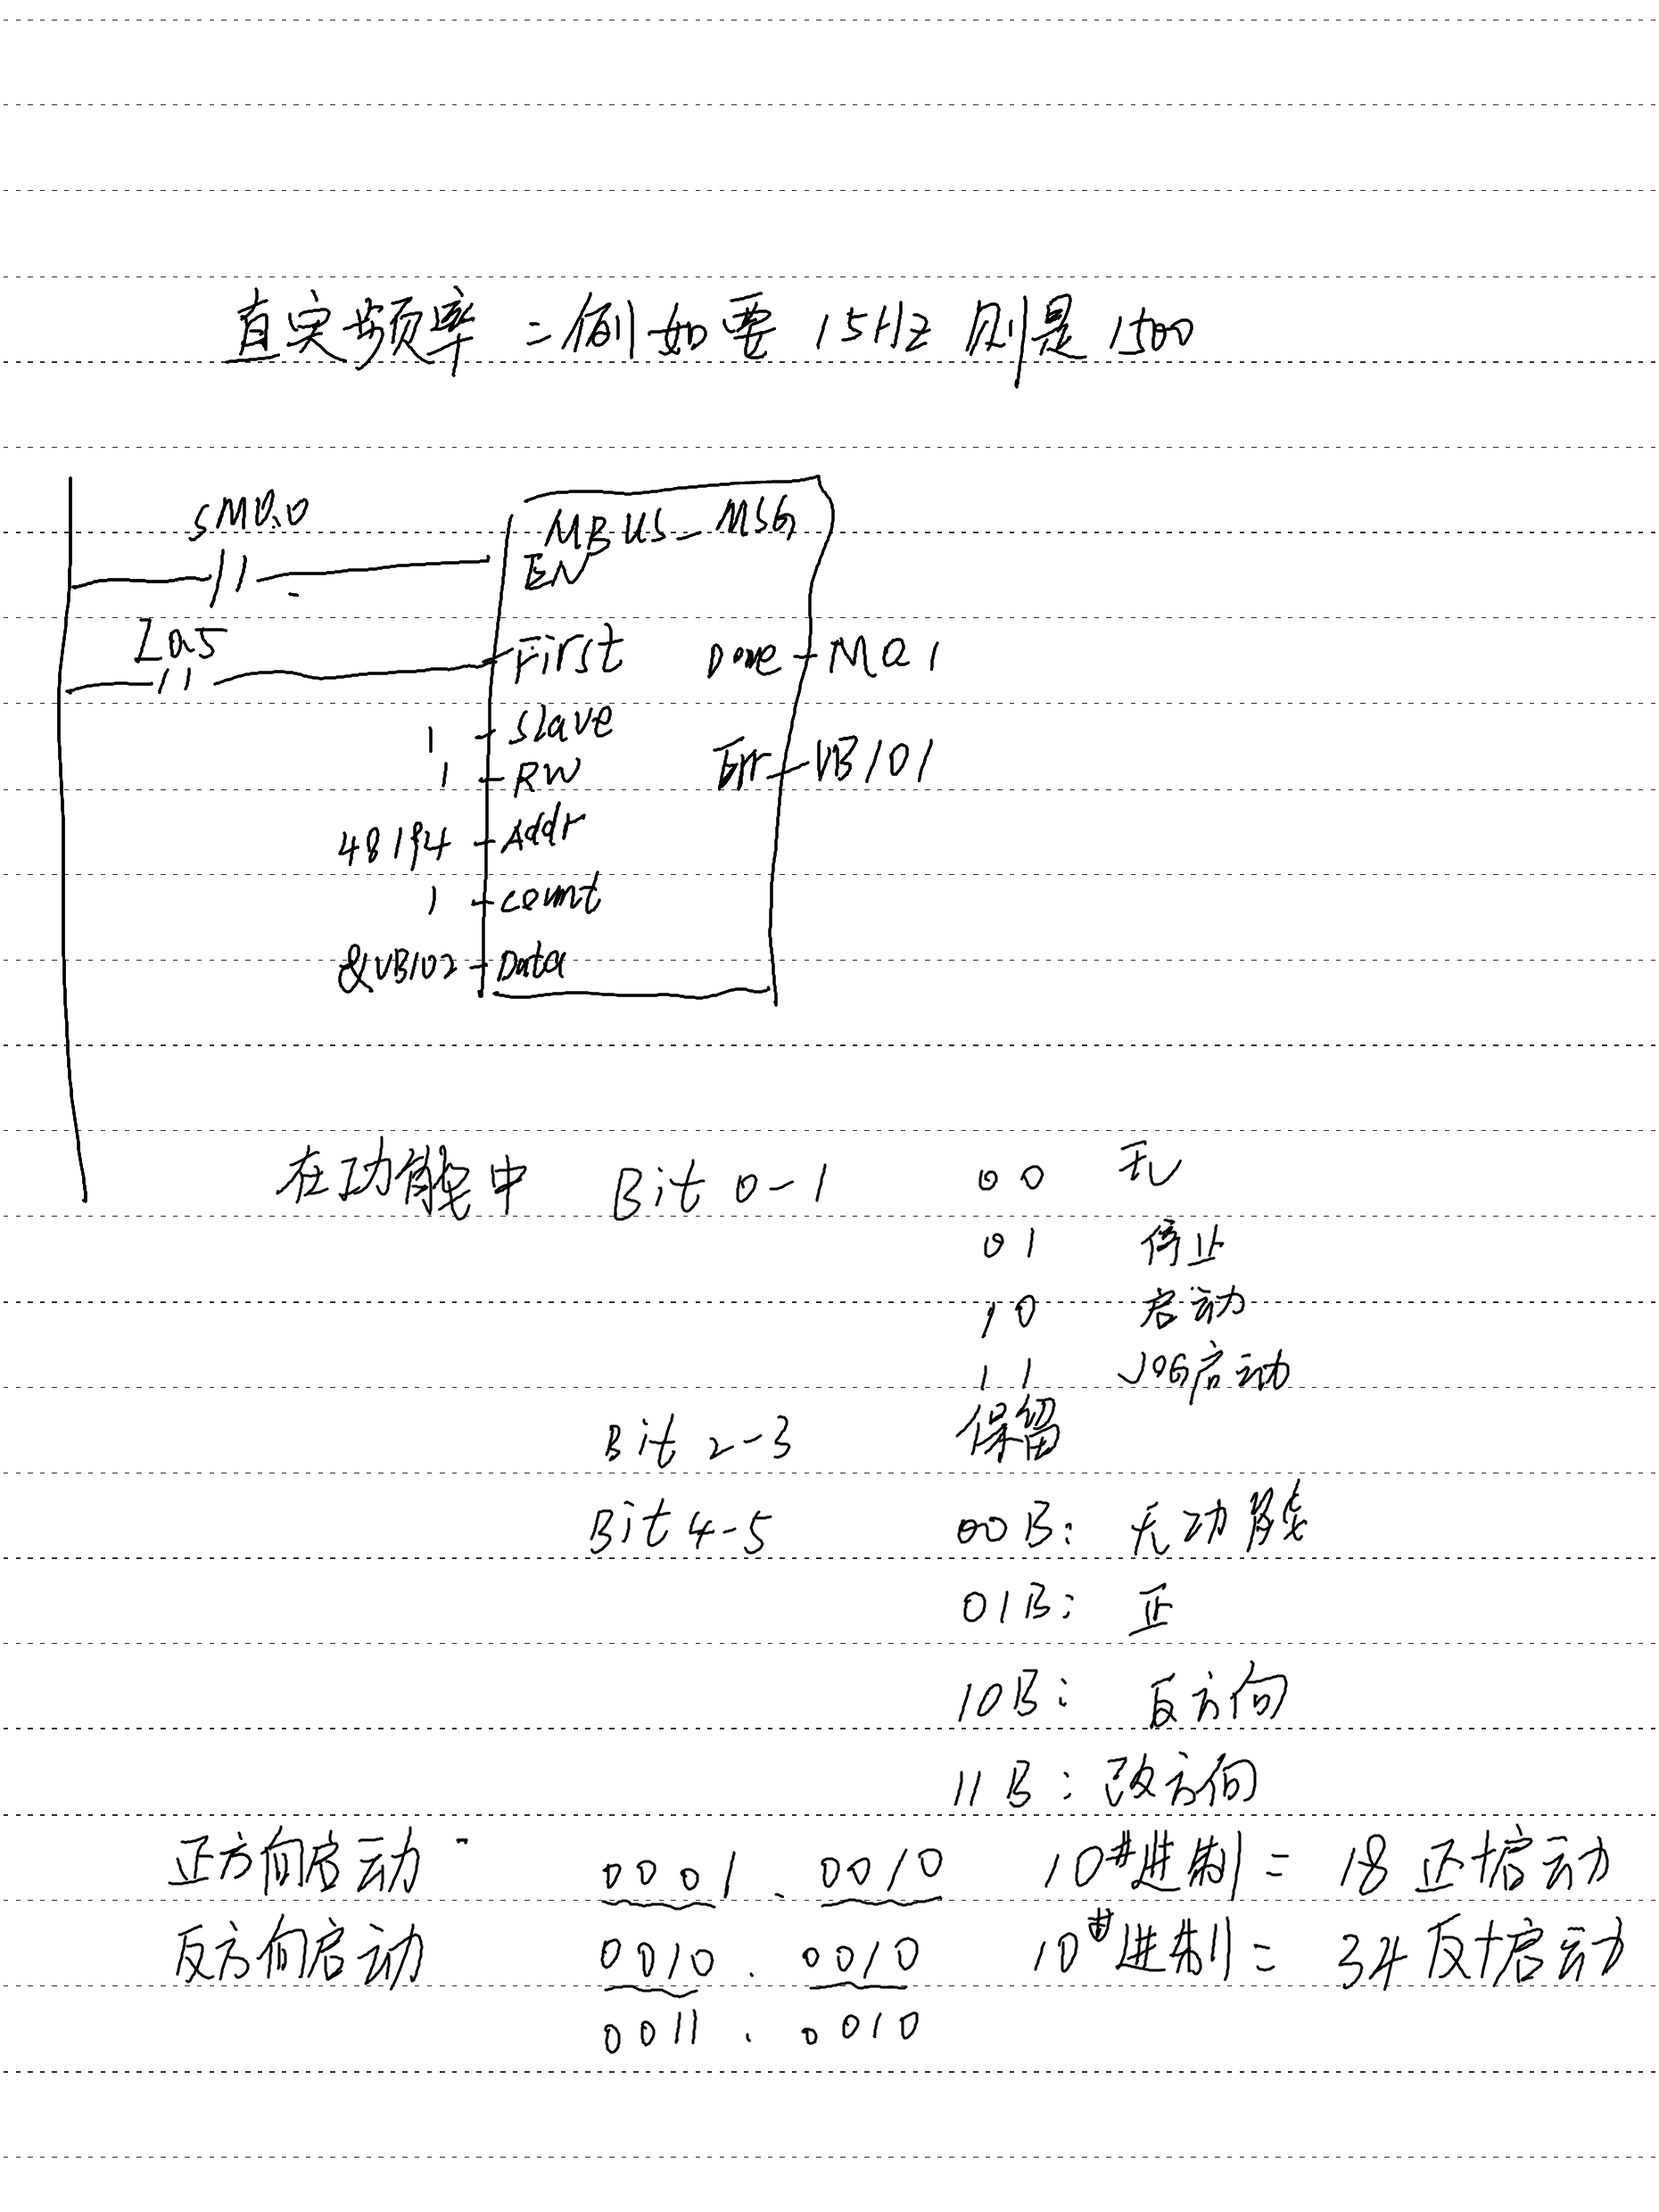 直实频率 = 例如要 15HZ 则是 1500
SM0.0
MBUS_MSG
EN
I0.5
First
Done
M0.1
1
Slave
1
RW
Err
VB101
48194
Addr
1
count
&VB102
Data
在功能中 Bit 0-1 00 无
01 停止
10 启动
11 JOG启动
Bit 2-3 保留
Bit 4-5 00B: 无功能
01B: 正
10B: 反方向
11B: 改方向
正方向启动 0001.0010 10进制 = 18 正+启动
反方向启动 0010.0010 10进制 = 34 反+启动
0011.0010